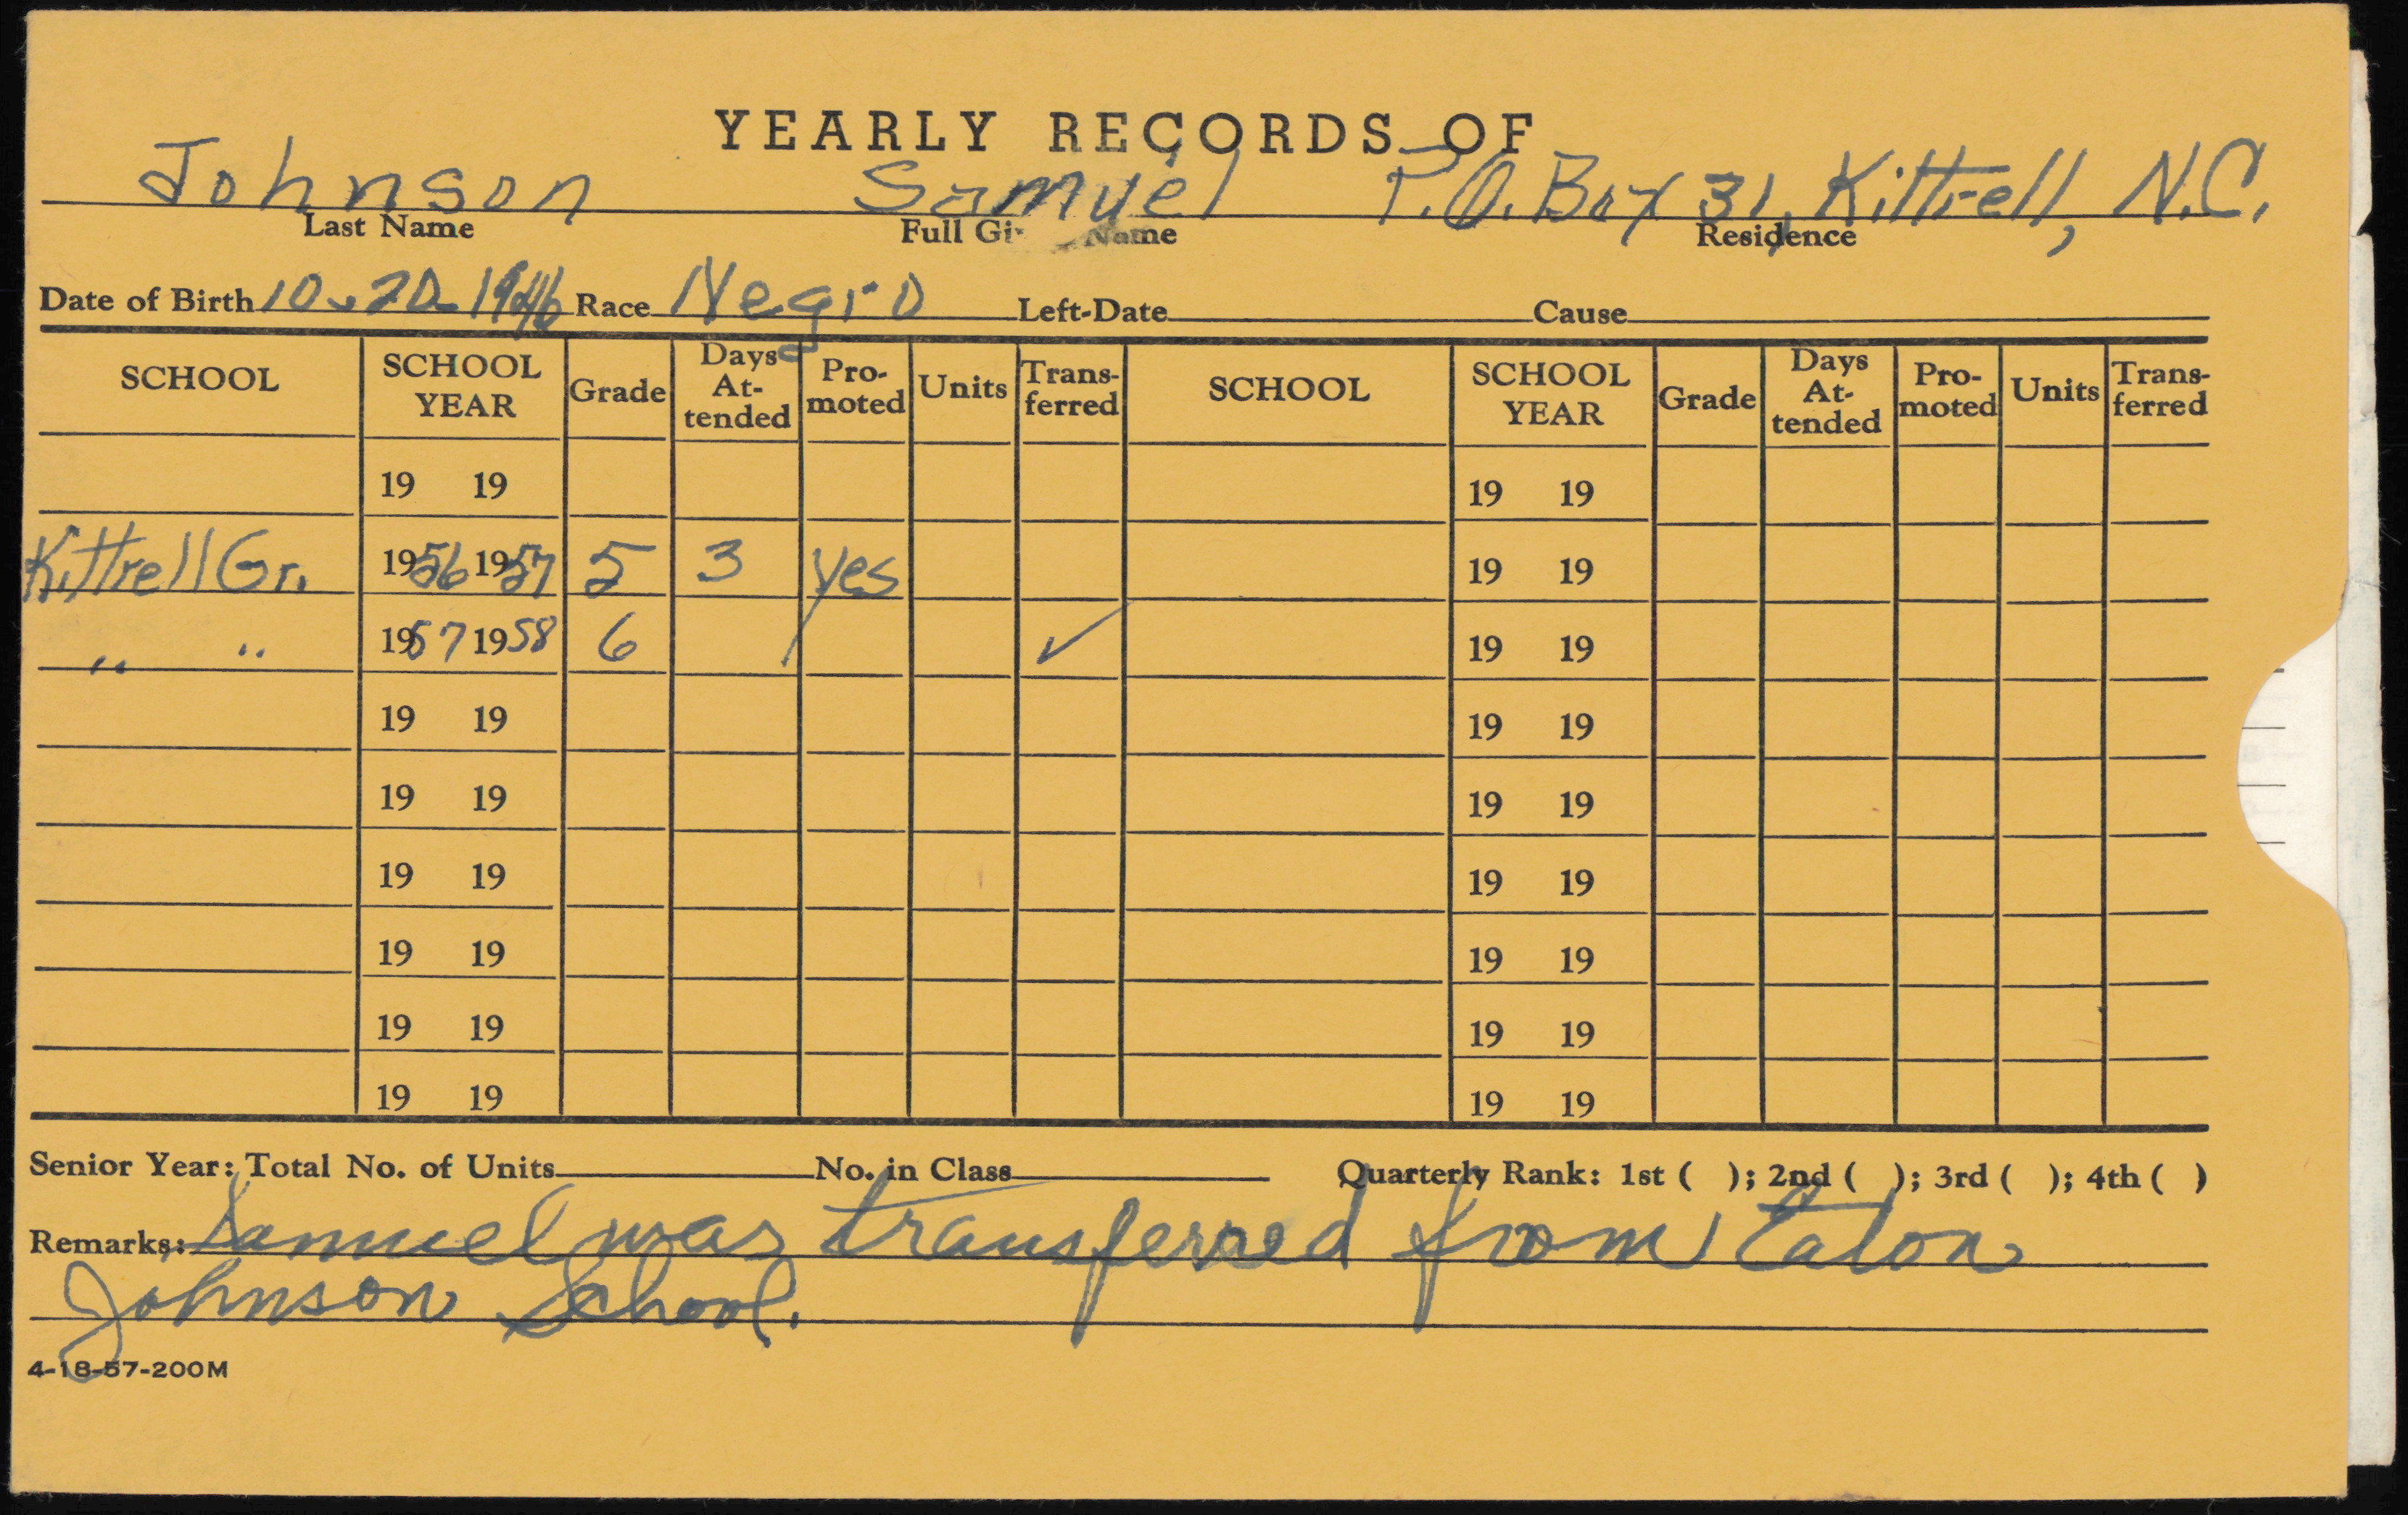 YEARLY RECORDS OF
Johnson Samuel P.O. Box 31, Kittrell, N.C.
Last Name Full Gi Name Residence
Date of Birth 10-20-1946 Race Negro Left-Date Cause
SCHOOL SCHOOL YEAR Grade Days At-tended Pro-moted Units Trans-ferred SCHOOL SCHOOL YEAR Grade Days At-tended Pro-moted Units Trans-ferred
19 19 19 19
Kittrell Gr. 1956 1957 5 3 yes 19 19
" " 1957 1958 6 ✓ 19 19
19 19 19 19
19 19 19 19
19 19 19 19
19 19 19 19
19 19 19 19
19 19 19 19
Senior Year: Total No. of Units No. in Class Quarterly Rank: 1st ( ); 2nd ( ); 3rd ( ); 4th ( )
Remarks: Samuel was transferred from Eaton
Johnson School.
4-18-57-200M